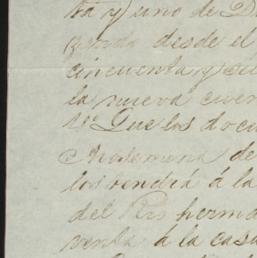 ta y uno de D
desde el
cincuenta y
la nueva cuen
Que los docu
de
los vendrá á la
del Rio herma
venta á la casa